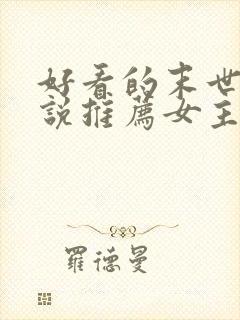 好看的末世
說推薦女主
羅德曼